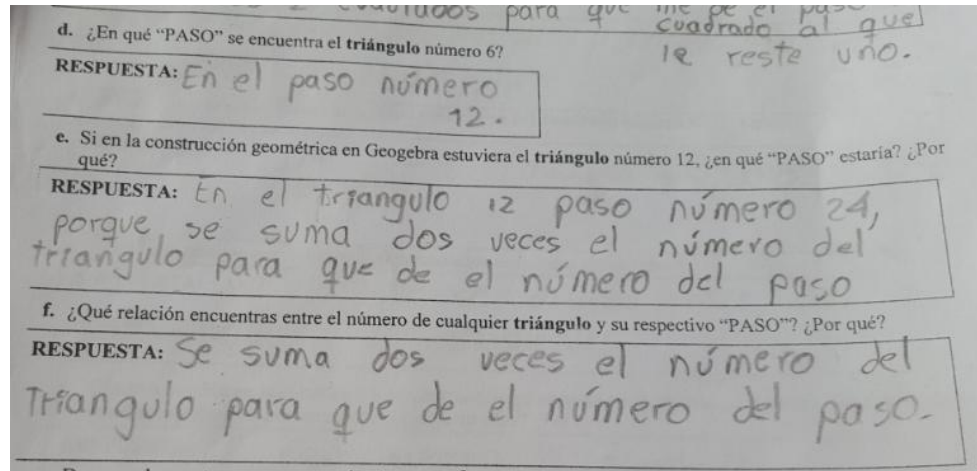 cuadrados para que me de el paso
cuadrado al que
le reste uno.
d. ¿En qué “PASO” se encuentra el triángulo número 6?
RESPUESTA: En el paso número
12.
e. Si en la construcción geométrica en Geogebra estuviera el triángulo número 12, ¿en qué “PASO” estaría? ¿Por
qué?
RESPUESTA: En el triangulo 12 paso número 24,
porque se suma dos veces el número del
triangulo para que de el número del paso
f. ¿Qué relación encuentras entre el número de cualquier triángulo y su respectivo “PASO”? ¿Por qué?
RESPUESTA: Se suma dos veces el número del
Triangulo para que de el número del paso.